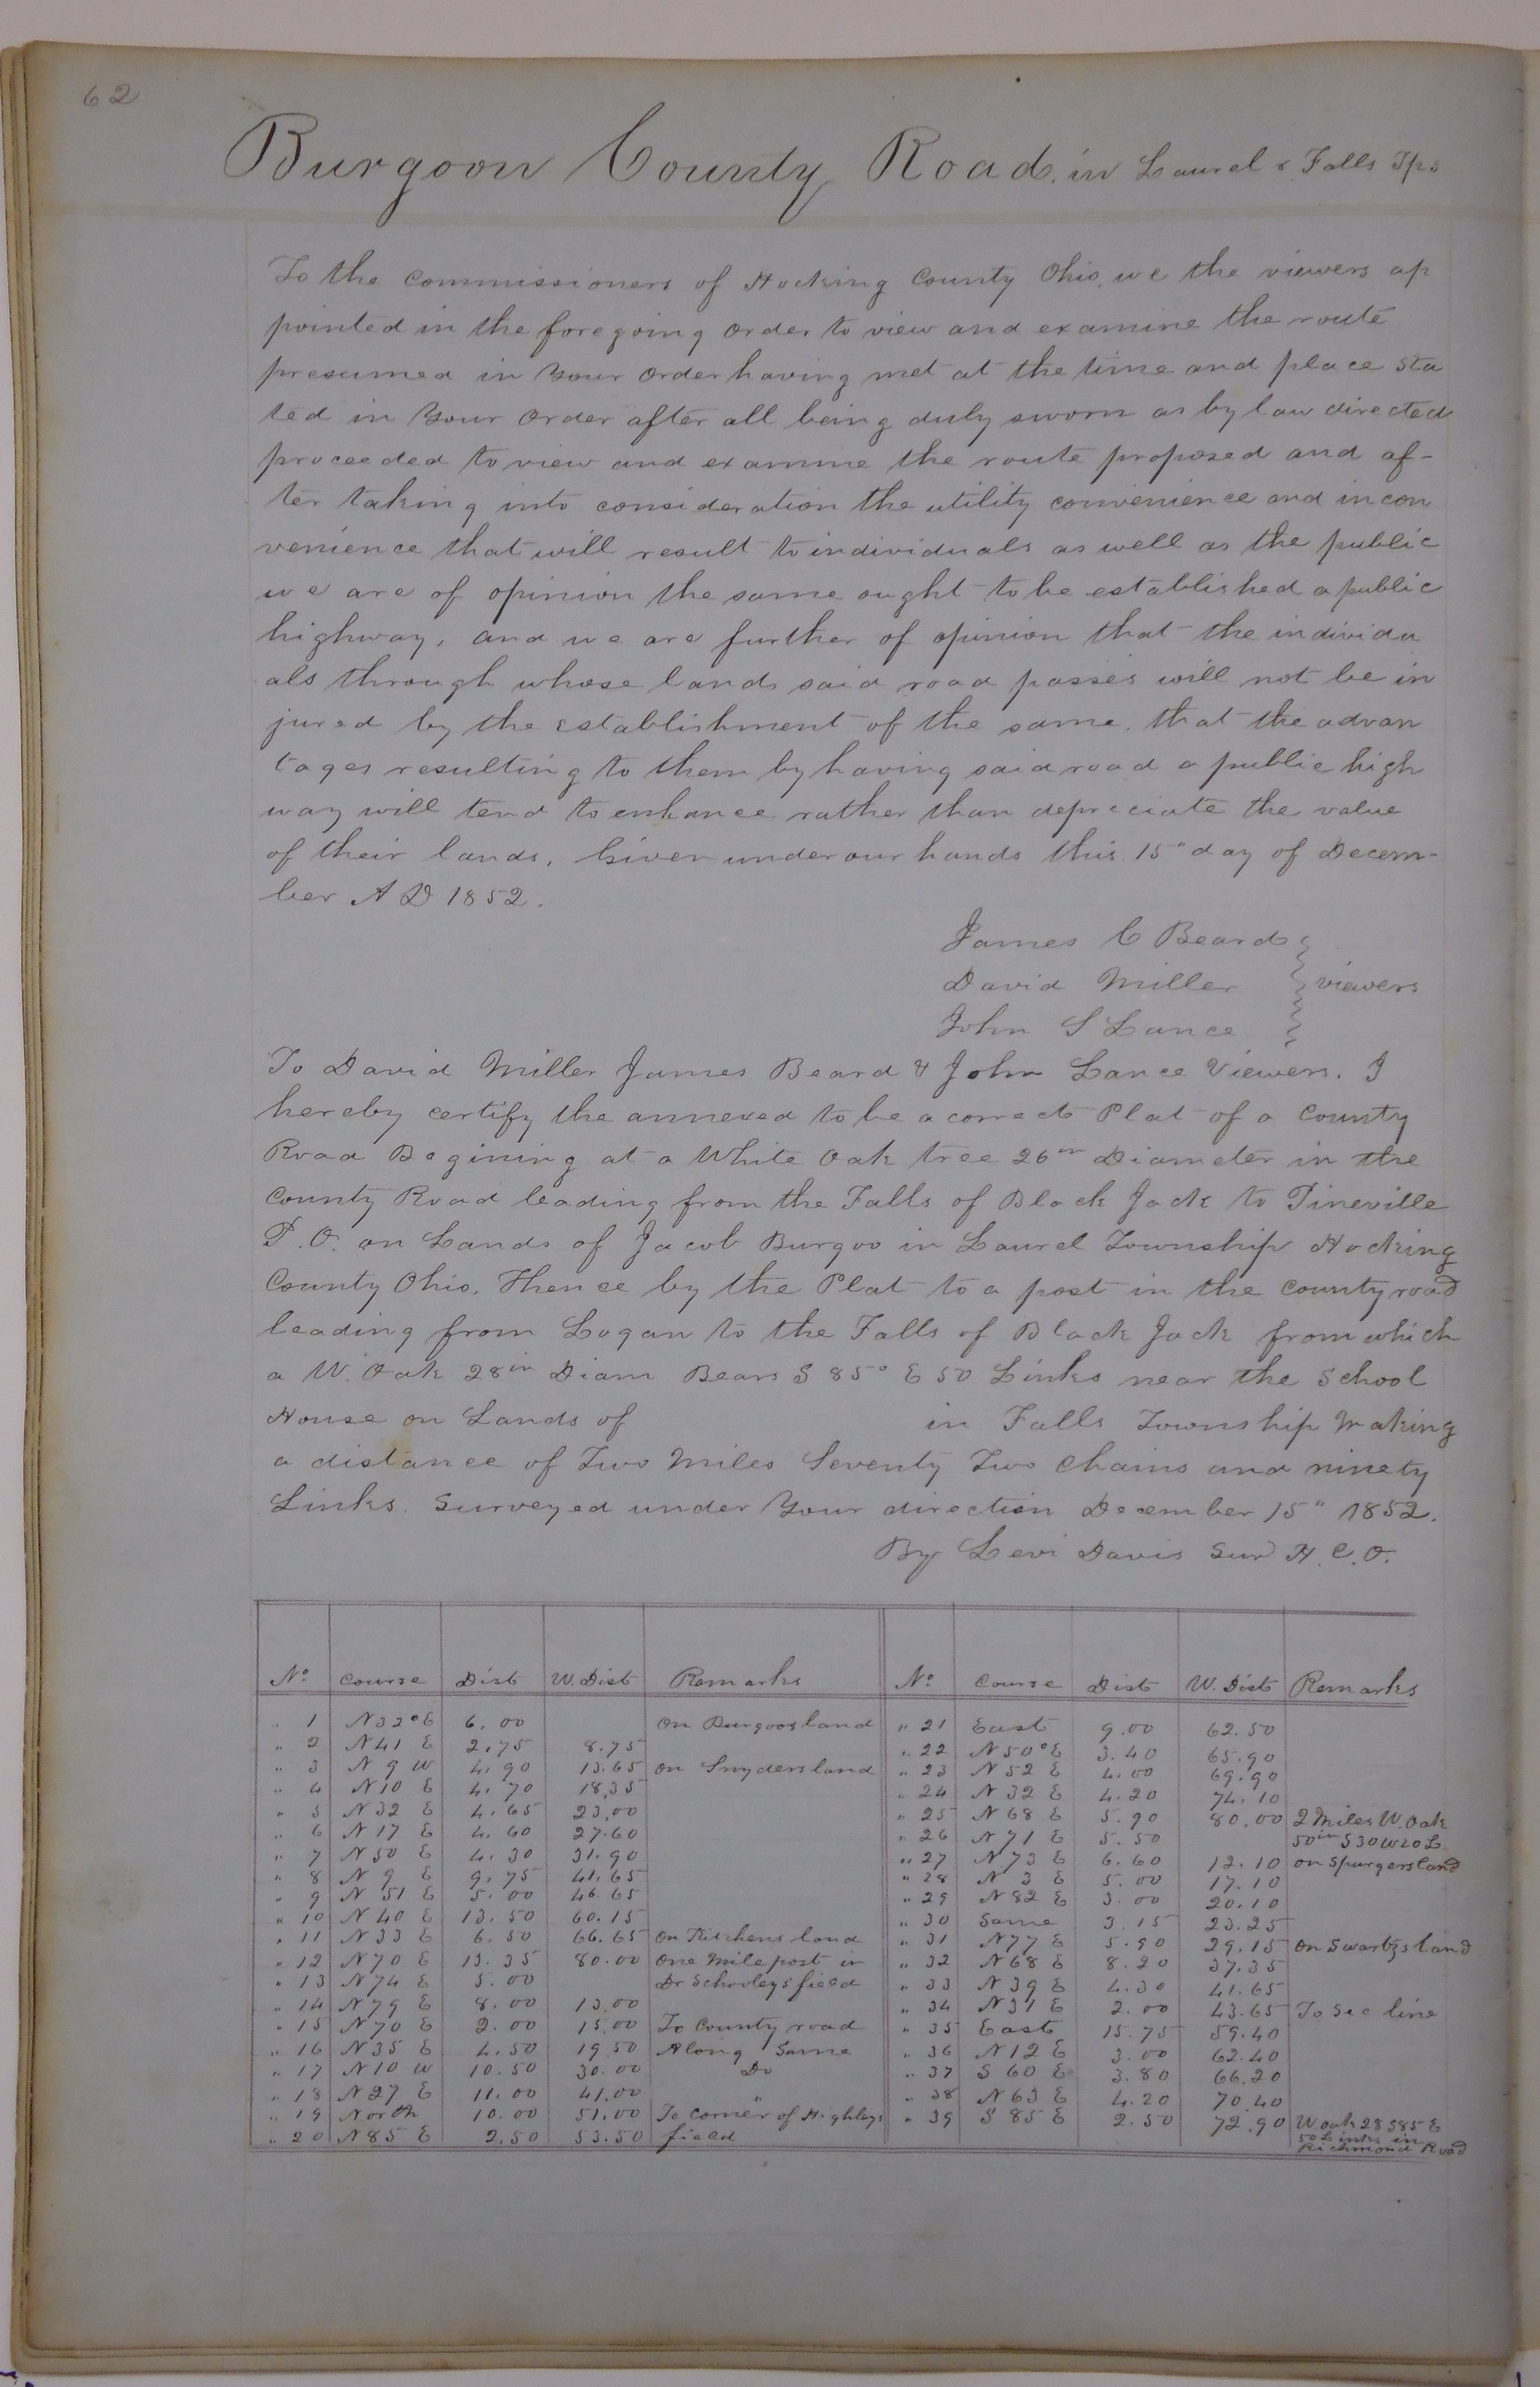 62
Burgoon County Road in Laurel & Falls Tps
To the Commissioners of Hocking County Ohio, we the viewers ap
pointed in the foregoing order to view and examine the route
presumed in Your order having met at the time and place sta
ted in Your order after all being duly sworn as by law directed
proceeded to view and examine the route proposed and af-
ter taking into consideration the utility convenience and incon
venience that will result to individuals as well as the public
we are of opinion the same ought to be established a public
highway, and we are further of opinion that the individu
als through whose lands said road passes will not be in
jured by the establishment of the same, that the advan
tages resulting to them by having said road a public high
way will tend to enhance rather than depreciate the value
of their lands, Given under our hands this 15" day of Decem-
ber A D 1852.
James C Beard
David Miller } viewers
John S Lance
To David Miller James Beard & John Lance Viewers. I
hereby certify the annexed to be a correct Plat of a County
Road Begining at a White Oak tree 26in Diameter in the
County Road leading from the Falls of Black Jack to Pineville
P.O. on Lands of Jacob Burgoo in Laurel Township Hocking
County Ohio, Thence by the Plat to a post in the county road
leading from Logan to the Falls of Black Jack from which
a W. Oak 28in Diam Bears S 85° E 50 Links near the School
House on Lands of in Falls Township Making
a distance of Two Miles Seventy Two Chains and ninety
Links. Surveyed under Your direction December 15" 1852.
By Levi Davis Sur H.C.O.
No Course Dist W. Dist Remarks No Course Dist W. Dist Remarks
" 1 N32°E 6.00 On Burgoos land " 21 East 9.00 62.50
" 2 N41 E 2.75 8.75 " 22 N50°E 3.40 65.90
" 3 N 9 W 4.90 13.65 on Snyders land " 23 N52 E 4.00 69.90
" 4 N10 E 4.70 18,35 " 24 N32 E 4.20 74.10
" 5 N32 E 4.65 23,00 " 25 N68 E 5.90 80.00 2 Miles W. Oak
" 6 N17 E 4.60 27.60 " 26 N71 E 5.50 50in S30W20L
" 7 N50 E 4.30 31.90 " 27 N73 E 6.60 12.10 on Spurgers land
" 8 N 9 E 9,75 41,65 " 28 N 3 E 5.00 17.10
" 9 N 51 E 5.00 46.65 " 29 N82 E 3.00 20.10
" 10 N40 E 13.50 60.15 " 30 Same 3.15 23.25
" 11 N33 E 6.50 66.65 on Kitchens land " 31 N77 E 5.90 29.15 on Swartzs land
" 12 N70 E 13.35 80.00 One Mile post in " 32 N68 E 8.20 37.35
" 13 N74 E 5.00 Dr Schooleys field " 33 N39 E 4.30 41.65
" 14 N79 E 8.00 13.00 " 34 N31 E 2.00 43.65 To Sec line
" 15 N70 E 2.00 15.00 To County road " 35 East 15.75 59.40
" 16 N35 E 4.50 19.50 Along Same " 36 N12 E 3.00 62.40
" 17 N10 W 10.50 30.00 Do " 37 S 60 E 3.80 66.20
" 18 N27 E 11.00 41.00 " " 38 N63 E 4.20 70.40
" 19 North 10.00 51.00 To Corner of Highleys " 39 S 85 E 2.50 72.90 W oak 28 S85 E
" 20 N85 E 2.50 53.50 field 50 Links in
Richmond Road